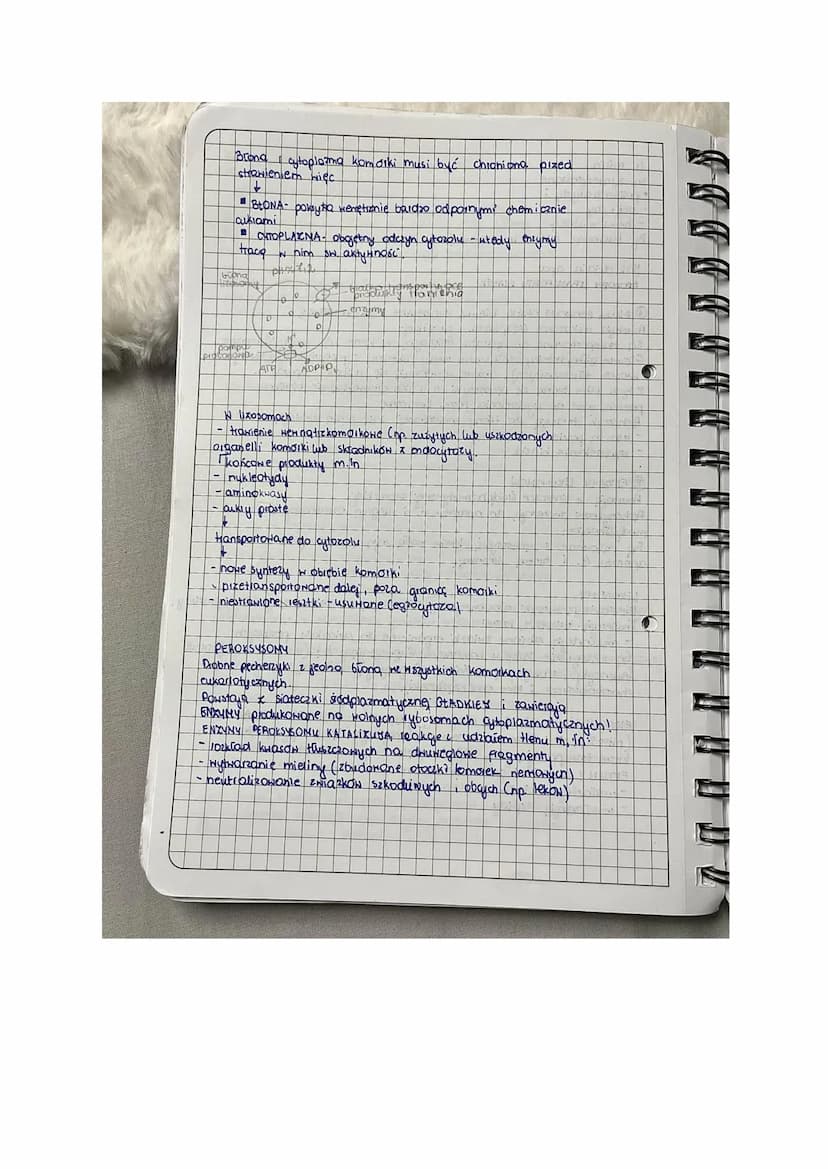 Błona i cytoplazma komórki musi być chroniona przed
strawieniem więc
↓
▪ BŁONA - pokryta wewnętrznie bardzo odpornymi chemicznie
cukrami
▪ CYTOPLAZMA - obojętny odczyn cytozolu - wtedy enzymy
tracą w nim sw. aktywność.
błona
pH
białka transportujące
produkty trawienia
enzymy
H⁺
pompa
protonowa
ATP ADP+Pi
W lizosomach
- trawienie wewnątrzkomórkowe (np. zużytych lub uszkodzonych
organelli komórki lub składników z endocytozy.
końcowe produkty m.in
- nukleotydy
- aminokwasy
- cukry proste
↓
transportowane do cytozolu
↓
- nowe syntezy w obrębie komórki
- przetransportowane dalej, poza granicę komórki
- niestrawione resztki - usuwane (egzocytoza)
PEROKSYSOMY
Drobne pęcherzyki z jedną błoną we wszystkich komórkach
eukariotycznych.
Powstają z siateczki śródplazmatycznej GŁADKIEJ i zawierają
ENZYMY produkowane na wolnych rybosomach cytoplazmatycznych!
ENZYMY PEROKSYSOMU KATALIZUJĄ reakcje z udziałem tlenu m.in:
- rozkład kwasów tłuszczowych na dwuwęglowe fragmenty
- wytwarzanie mieliny (zbudowane otoczki komórek nerwowych)
- neutralizowanie związków szkodliwych, obcych (np. leków)